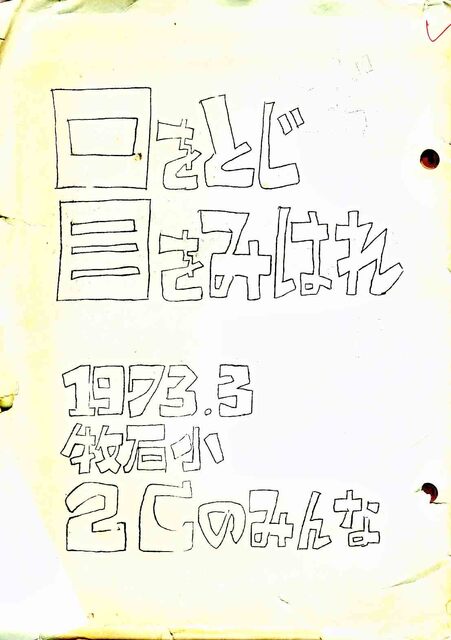 口をとじ
目をみはれ
1973.3
牧石小
2Cのみんな